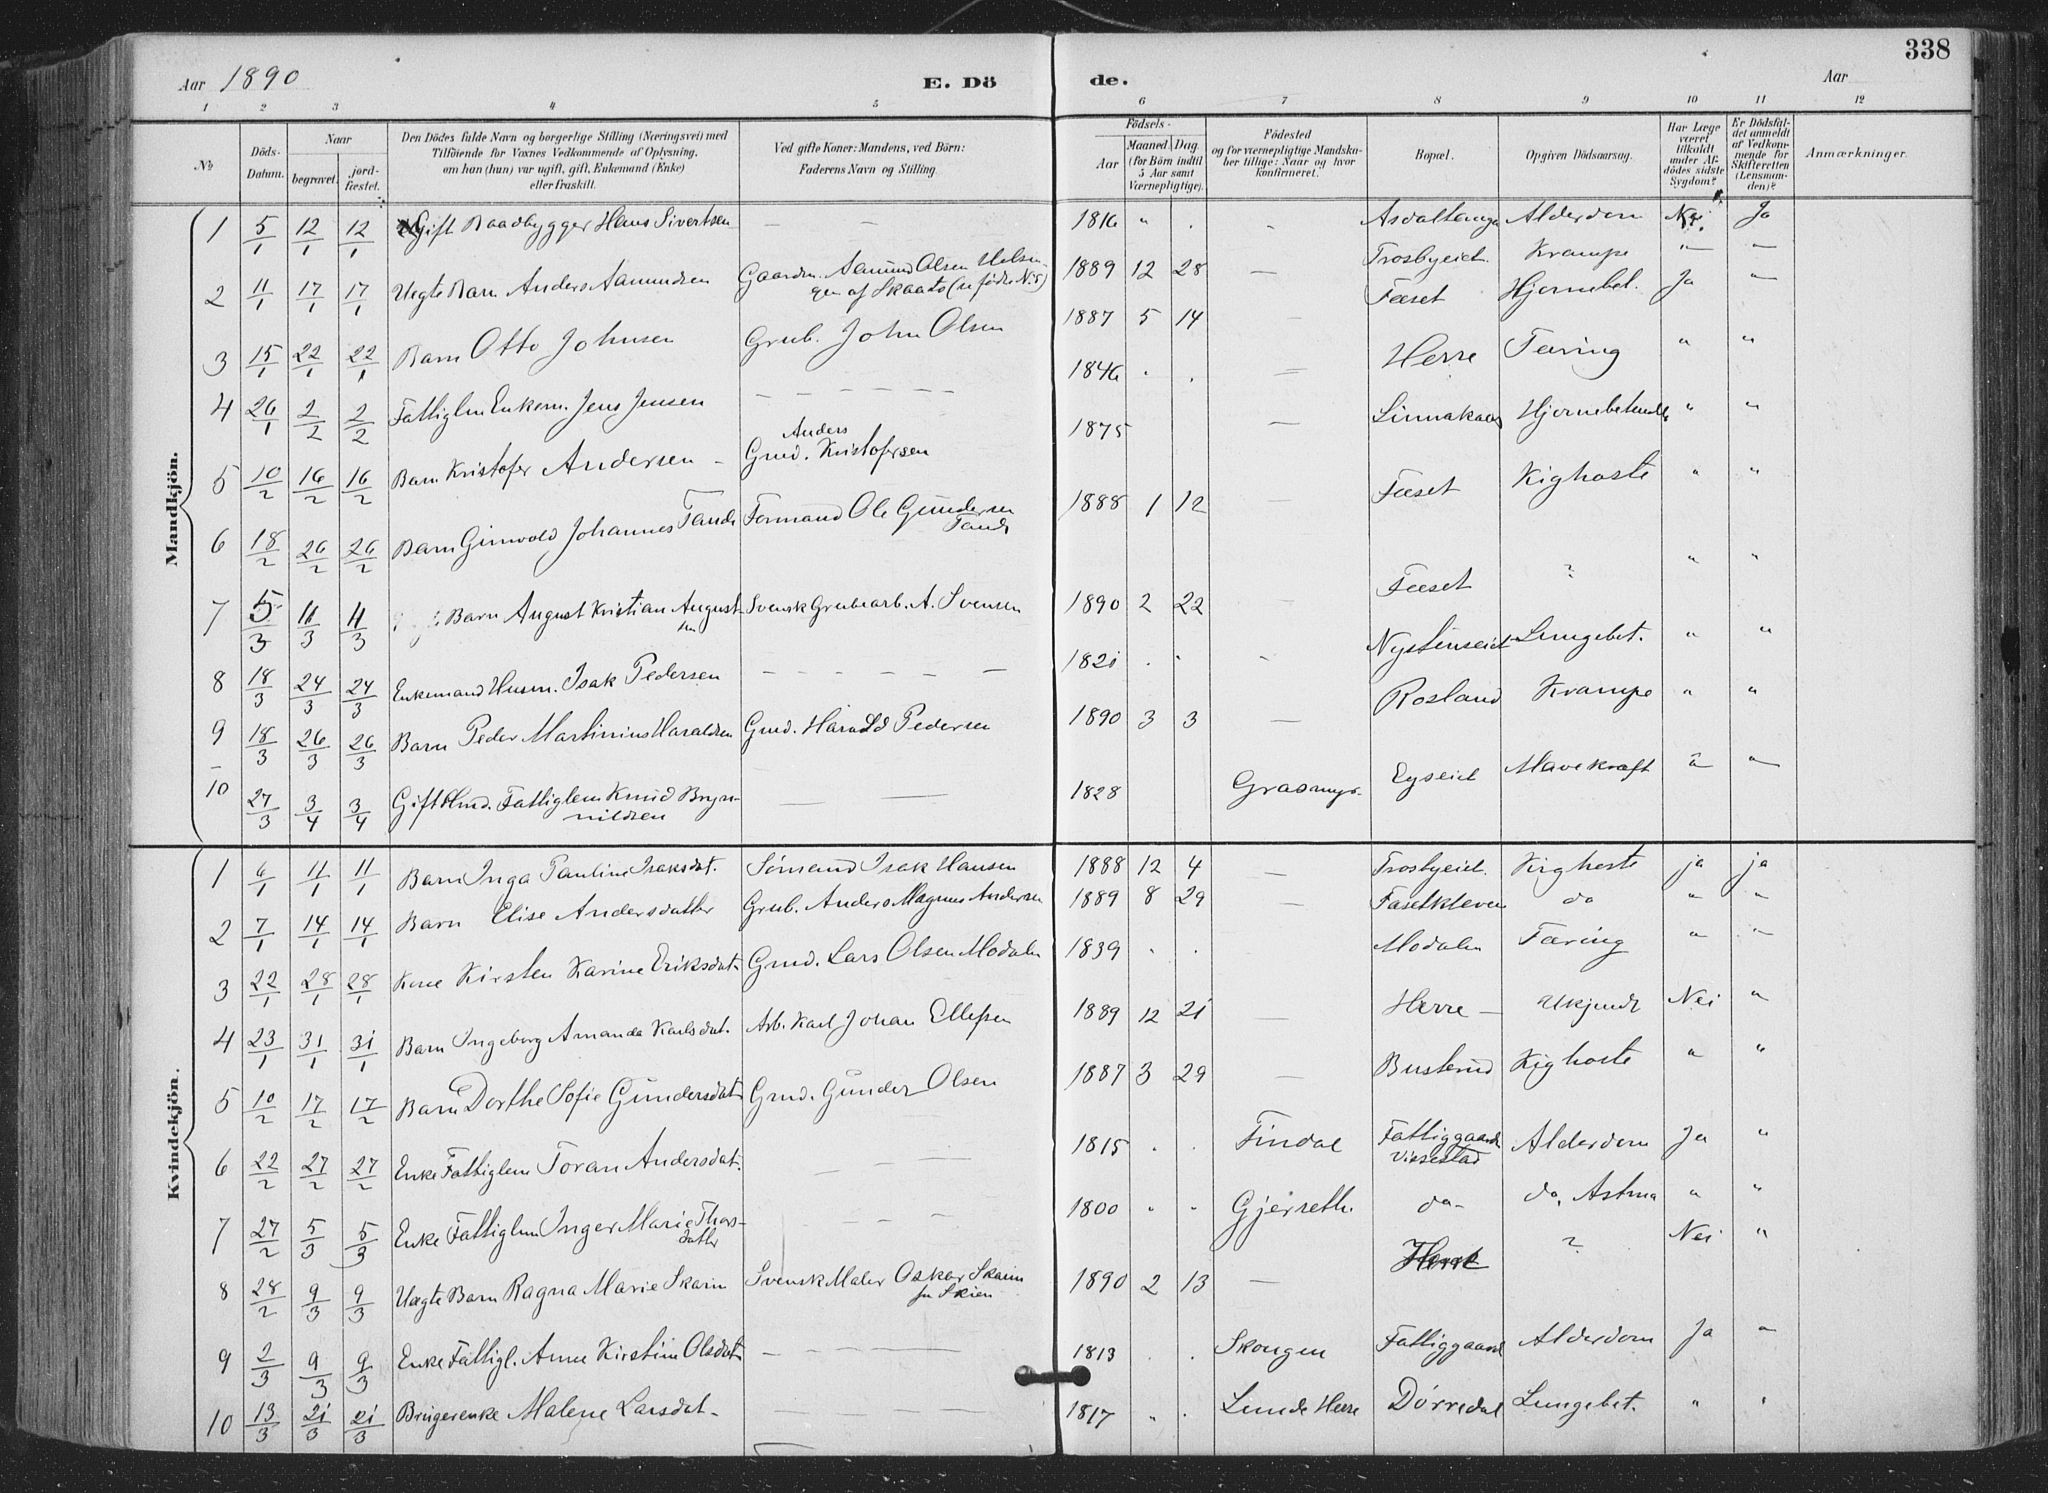 338
Aar 1890 E. Dö de. Aar
1 2 3 4 5 6 7 8 9 10 11 12
No
Döds-Datum.
Naar begravet. jordfæstet.
Den Dödes fulde Navn og borgerlige Stilling (Næringsvei) med
Tilföiende for Voxnes Vedkommende af Oplysning,
om han (hun) var ugift, gift, Enkemand (Enke)
eller fraskilt.
Ved gifte Koner: Mandens, ved Börn:
Faderens Navn og Stilling.
Födsels-
Aar Maaned Dag (for Börn indtil 5 Aar samt Værnepligtige).
Födested
og for værnepligtige Mandskaber tillige: Naar og hvor konfirmeret.
Bopæl.
Opgiven Dödsaarsag.
Har Læge været tilkaldt under Afdödes sidste Sygdom?
Er Dödsfaldet anmeldt af Vedkommende for Skifteretten (Lensmanden)?
Anmærkninger.
Mandkjön.
1 5/1 12/1 12/1 Gift Baadbygger Hans Sivertsen — — 1816 " . - Asdaltangen Alderdom Nei. Ja
2 11/1 17/1 17/1 Uegte Barn Anders Aamundsen Gaardm. Aamund Olsen Helsingen af Skaato (se fødte No 5) 1889 12 28 — Trosbyeiet. Krampe — —
3 15/1 22/1 22/1 Barn Otto Johnsen Grub. John Olsen 1887 5 14 — Fæset Hjernebet. Ja "
4 26/1 2/2 2/2 Fattiglm Enkem. Jens Jensen — — — — — 1846 . . — Herre Tæring " "
5 10/2 16/2 16/2 Barn Kristofer Andersen - Gmd. Anders Kristofersen 1875 — Linnakaas Hjernebetændl. " "
6 18/2 26/2 26/2 Barn Ginvold Johannes Tande Formand Ole Gundersen Tande 1888 1 12 — Fæset Kighoste " "
7 5/3 11/3 11/3 Barn August Kristian Augustsen Svensk Grubearb. A. Svensen 1890 2 22 — Fæset ? " "
8 18/3 24/3 24/3 Enkemand Husm. Isak Pedersen — — — — — 1821 . . - Nystenseiet Lungebet. " "
9 18/3 26/3 26/3 Barn Peder Martinius Haraldsen Gmd. Harald Pedersen 1890 3 3 — Rosland Krampe " "
10 27/3 3/4 3/4 Gift Hmd. Fattiglem Knud Brynnildsen — — 1828 Grasmyr. Eyseiet Mavekræft " "
Kvindekjön.
1 6/1 11/1 11/1 Barn Inga Pauline Isaksdat. Sømand Isak Hansen 1888 12 4 — Trosbyeiet. Kighoste ja ja
2 7/1 14/1 14/1 Barn Elise Andersdatter Grub. Anders Magnus Andersen 1889 8 29 — Fasetkleven do " "
3 22/1 28/1 28/1 Kone Kirsten Karine Eriksdat. Gmd. Lars Olsen Modalen 1839 . . Modalen Tæring " "
4 23/1 31/1 31/1 Barn Ingeborg Amanda Karlsdat. Arb. Karl Johan Ellefsen 1889 12 21 — Herre — Ukjendt Nei "
5 10/2 17/2 17/2 Barn Dorthe Sofie Gundersdat. Gmd. Gunder Olsen 1887 3 29 — Busterud Kighoste " "
6 22/2 27/2 27/2 Enke Fattiglem Toran Andersdat. — — — 1815 . . Findal Fattiggaard Vissestad Alderdom Ja "
7 27/2 5/3 5/3 Enke Fattiglm Inger Marie Thorsdatter — — — 1800 " " Gjerseth. do- do, Astma " "
8 28/2 9/3 9/3 Uægte Barn Ragna Marie Skarin Svensk Maler Oskar Skarin fra Skien 1890 2 13 — Herre ? Nei "
9 2/3 9/3 9/3 Enke Fattigl. Anne Kirstine Olsdat. — — — 1813 . . Skougen Fattiggaard Alderdom Ja "
10 13/3 21/3 21/3 Brugerenke Malene Larsdat. — — — 1817 " . Lunde Herre Dørredal Lungebet. " "